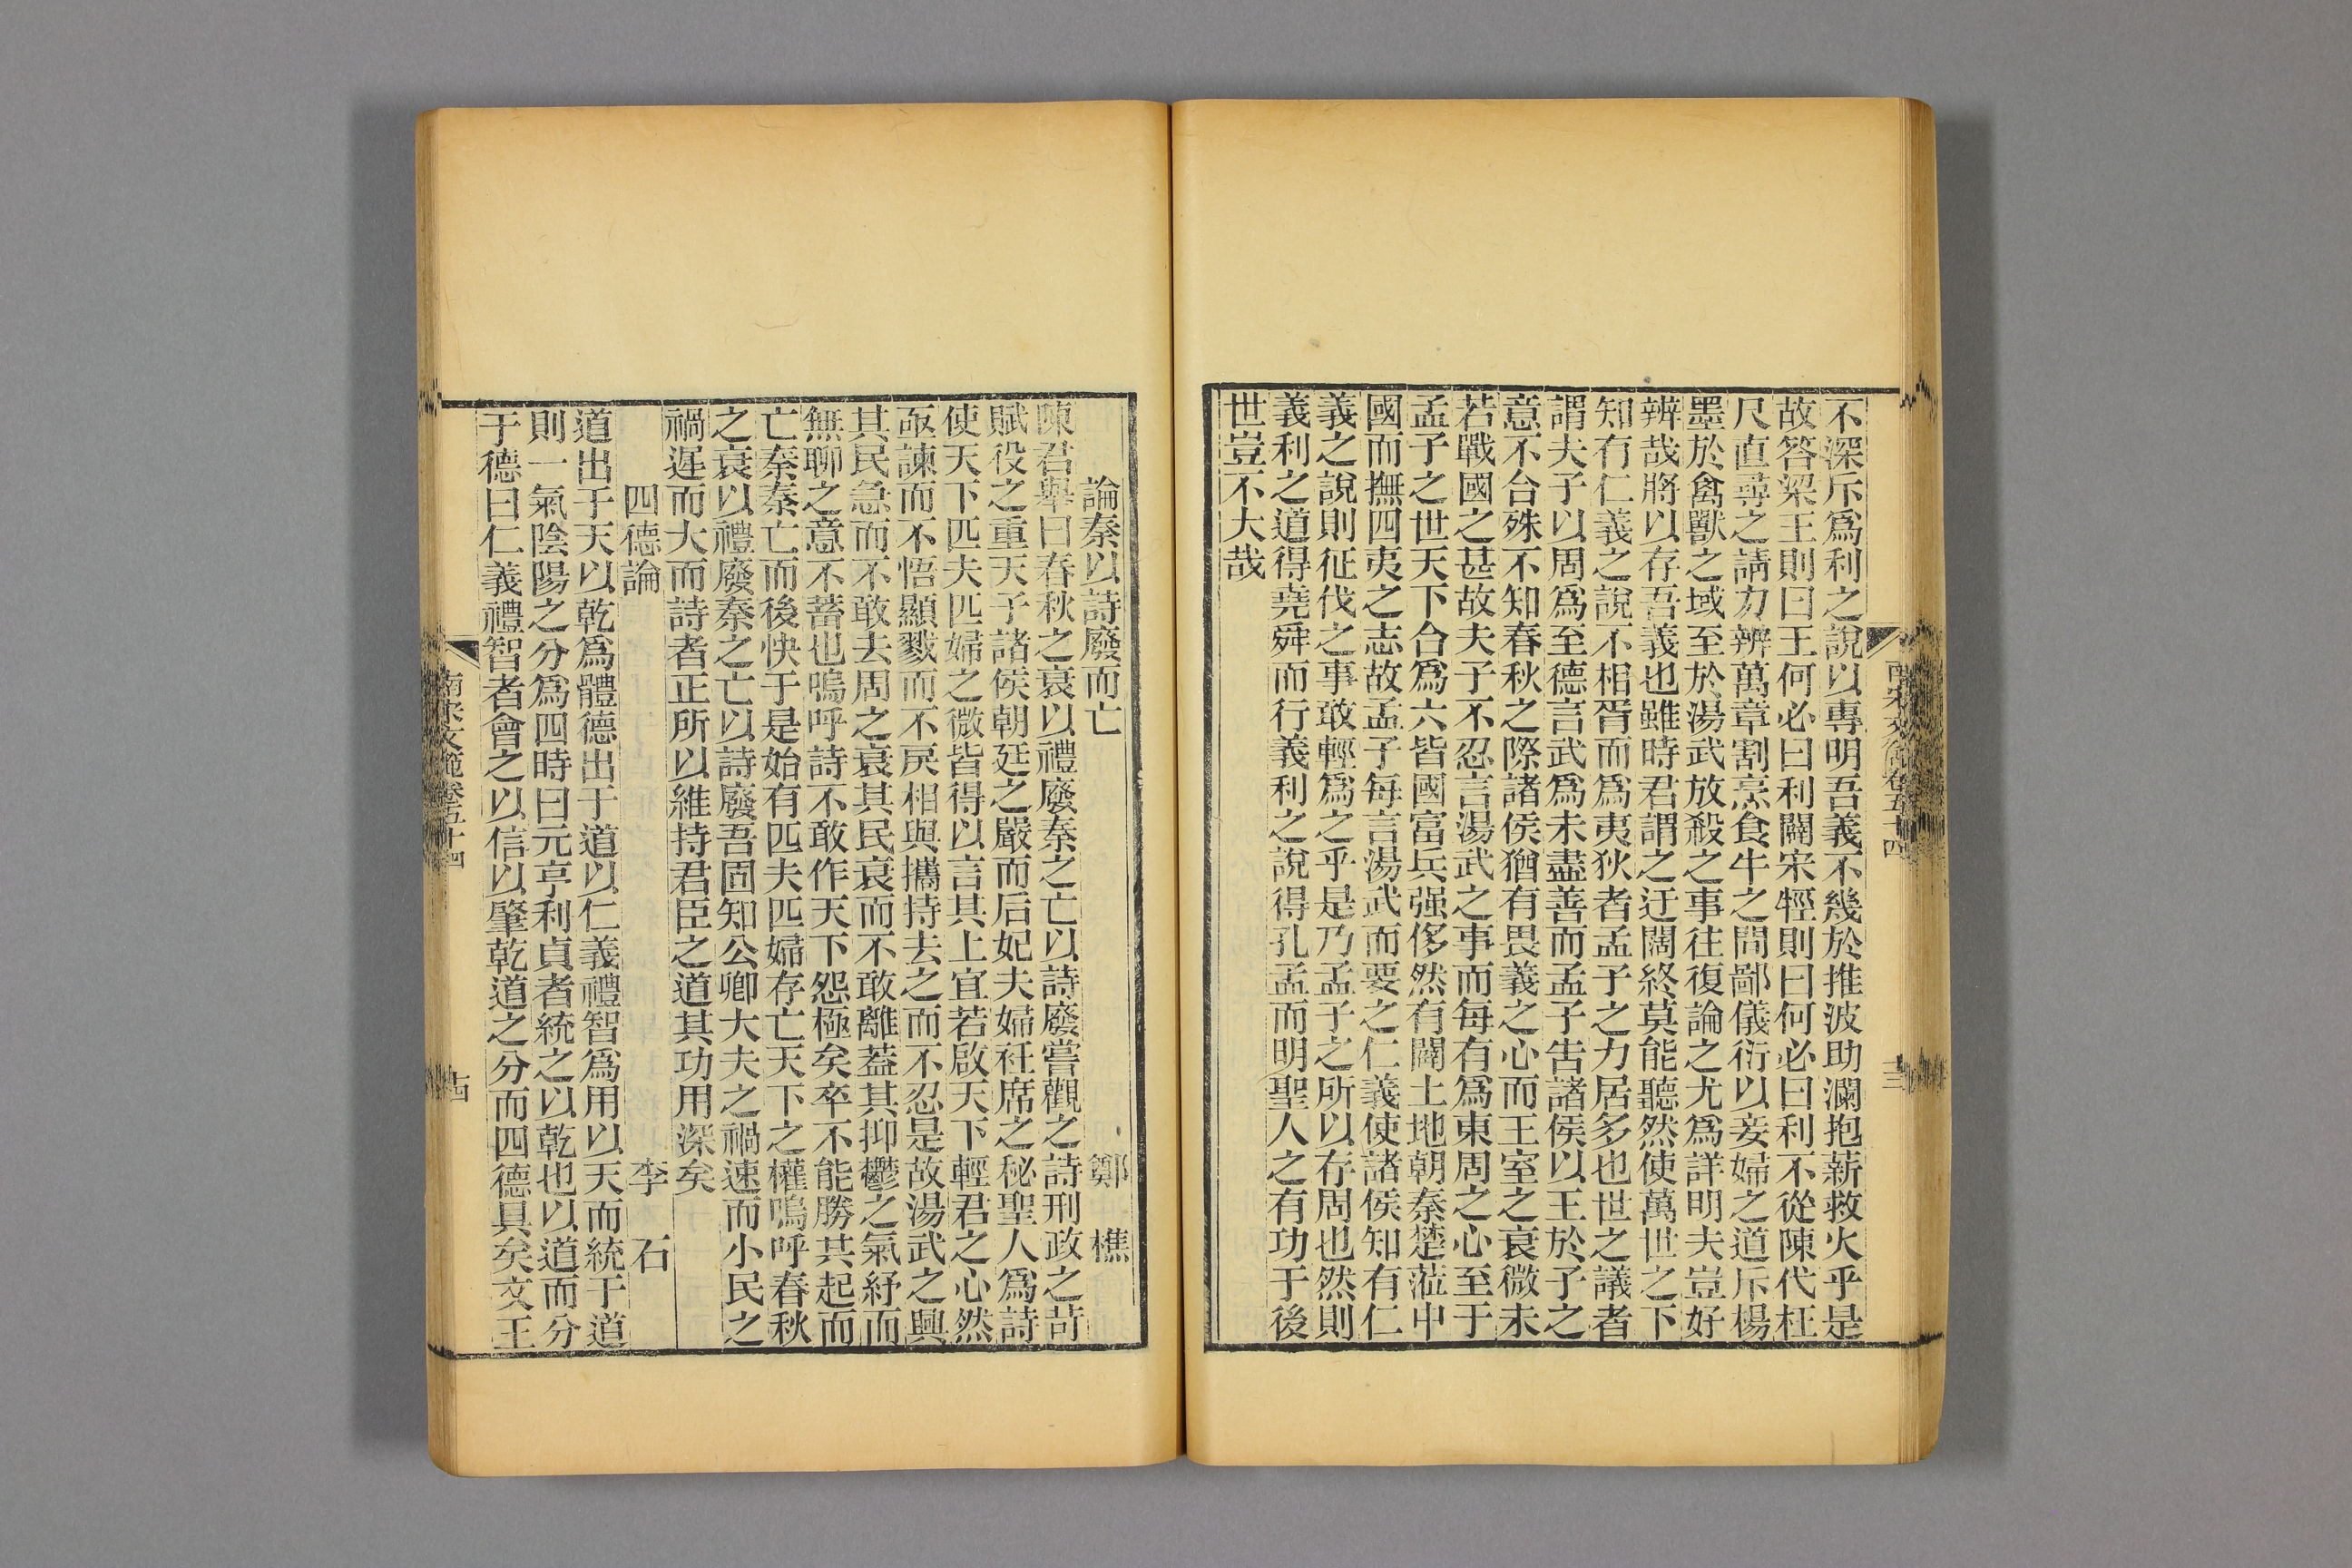 不深斥爲利之說以專明吾義不幾於推波助瀾抱薪救火乎是
故答梁王則曰王何必曰利闢宋牼則曰何必曰利不從陳代枉
尺直尋之請力辨萬章割烹食牛之問鄙儀衍以妾婦之道斥楊
墨於禽獸之域至於湯武放殺之事往復論之尤爲詳明夫豈好
辨哉將以存吾義也雖時君謂之迂闊終莫能聽然使萬世之下
知有仁義之說不相胥而爲夷狄者孟子之力居多也世之議者
謂夫子以周爲至德言武爲未盡善而孟子告諸侯以王於予之
意不合殊不知春秋之際諸侯猶有畏義之心而王室之衰微未
若戰國之甚故夫子不忍言湯武之事而每有爲東周之心至于
孟子之世天下合爲六皆國富兵强侈然有闢土地朝秦楚蒞中
國而撫四夷之志故孟子每言湯武而要之仁義使諸侯知有仁
義之說則征伐之事敢輕爲之乎是乃孟子之所以存周也然則
義利之道得堯舜而行義利之說得孔孟而明聖人之有功于後
世豈不大哉
南宋文範卷五十四
十三
論秦以詩廢而亡 鄭樵
陳君舉曰春秋之衰以禮廢秦之亡以詩廢嘗觀之詩刑政之苛
賦役之重天子諸侯朝廷之嚴而后妃夫婦衽席之秘聖人爲詩
使天下匹夫匹婦之微皆得以言其上宜若啟天下輕君之心然
亟諫而不悟顯戮而不戾相與攜持去之而不忍是故湯武之興
其民急而不敢去周之衰其民哀而不敢離蓋其抑鬱之氣紓而
無聊之意不蓄也嗚呼詩不敢作天下怨極矣卒不能勝其起而
亡秦秦亡而後快于是始有匹夫匹婦存亡天下之權嗚呼春秋
之衰以禮廢秦之亡以詩廢吾固知公卿大夫之禍速而小民之
禍遲而大而詩者正所以維持君臣之道其功用深矣
四德論 李石
道出于天以乾爲體德出于道以仁義禮智爲用以天而統于道
則一氣陰陽之分爲四時曰元亨利貞者統之以乾也以道而分
于德曰仁義禮智者會之以信以肇乾道之分而四德具矣文王
南宋文範卷五十四
十四